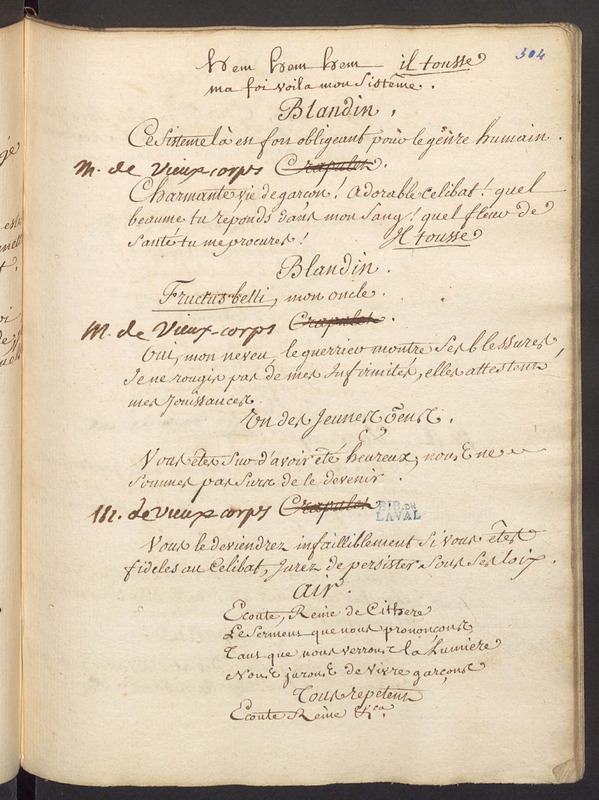 304
hem hem hem il tousse
ma foi voila mon Sistême.
Blandin,
Ce Sisteme là est fort obligeant pour le genre humain.
M. de Vieux-corps Crapulet.
Charmante vie de garçon! adorable Celibat! quel
beaume tu reponds dans mon Sang! quel fleur de
Santé tu me procures! Il tousse
Blandin.
Fructus belli, mon oncle.
M. de Vieux-corps Crapulet.
Oui, mon neveu, le guerrier montre Ses blessures,
Je ne rougis pas de mes Infirmités, elles attestent
mes Jouissances.
Un des Jeunes Gens.
Vous êtes Sur d'avoir été heureux, nous ne
Sommes pas Surs de le devenir.
M. de vieux-corps Crapulet
BIB. DE
LAVAL
Vous le deviendrez infailliblement Si vous êtes
fideles au Celibat, Jurez de persister Sous Ses loix.
air.
Ecoute, Reine de Cithere
Le Serment que nous prononçons,
Tant que nous verrons la Lumiere
Nous jurons de vivre garçons
Tous repetent
Ecoute Reine &ca.